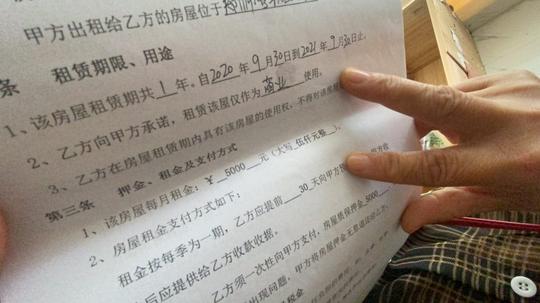 甲方出租给乙方的房屋位于
条 租赁期限、用途
1、该房屋租赁期共 1 年。自2020年9月30日到2021年9月30日止。
2、乙方向甲方承诺，租赁该屋仅作为商业使用。
3、乙方在房屋租赁期内具有该房屋的使用权，不得对该房
第三条 押金、租金及支付方式
1、该房屋每月租金：￥ 5000 元（大写 伍仟元整）。
2、房屋租金支付方式如下：
租金按每季为一期，乙方应提前 30 天向甲方
后应提供给乙方收款收据。
乙方须一次性向甲方支付，房屋质保押金 5000
出现问题，甲方将房屋押金无息退